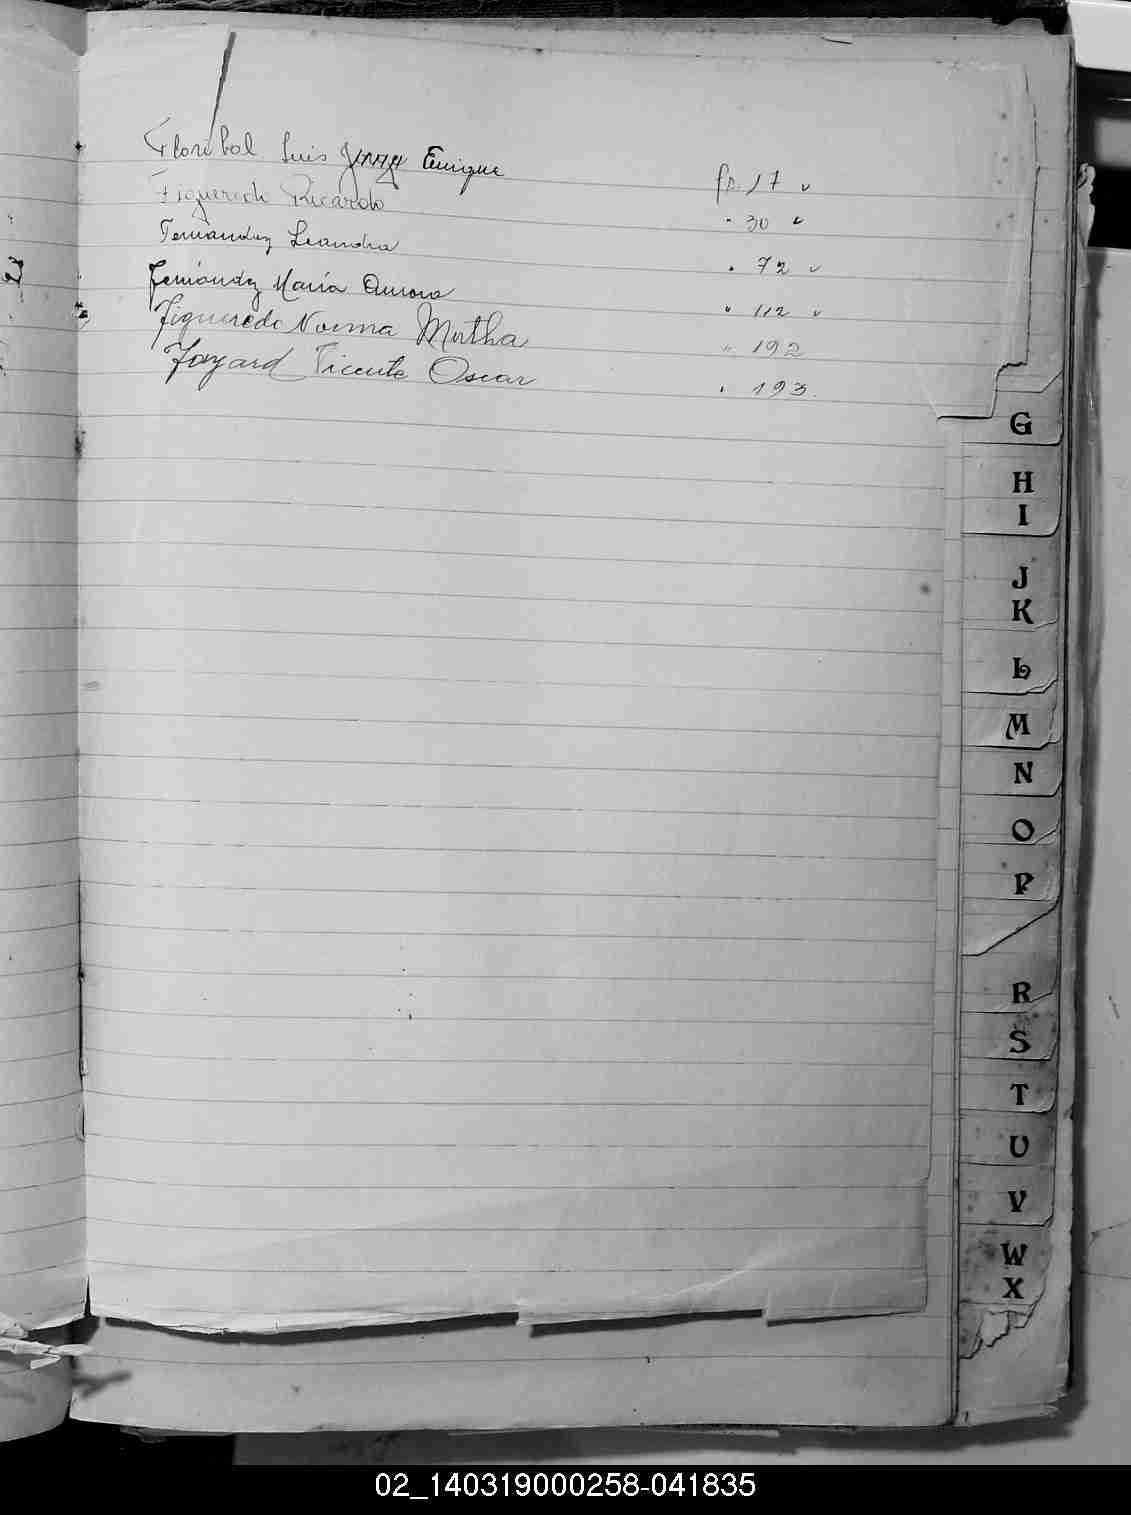 Floribal Luis Enrique fo. 17 v
Figueredo Ricardo " 30 v
Fernandez Leandra " 72 v
Fernández María Aurora " 112 v
Figueredo Norma Mirtha " 192
Fayard Vicente Oscar " 193.
G
H
I
J
K
L
M
N
O
P
R
S
T
U
V
W
X
02_140319000258-041835